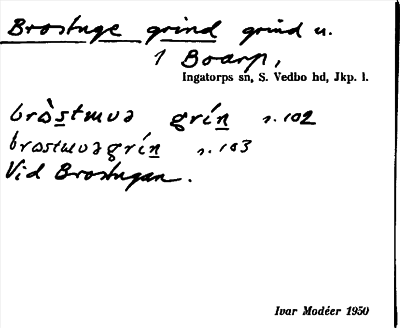 Brostuge grind grind u.
1 Boarp,
Ingatorps sn, S. Vedbo hd, Jkp. l.
bròstɯvə grín s. 102
brostɯvəgrín s. 103
Vid Brostugan.
Ivar Modéer 1950